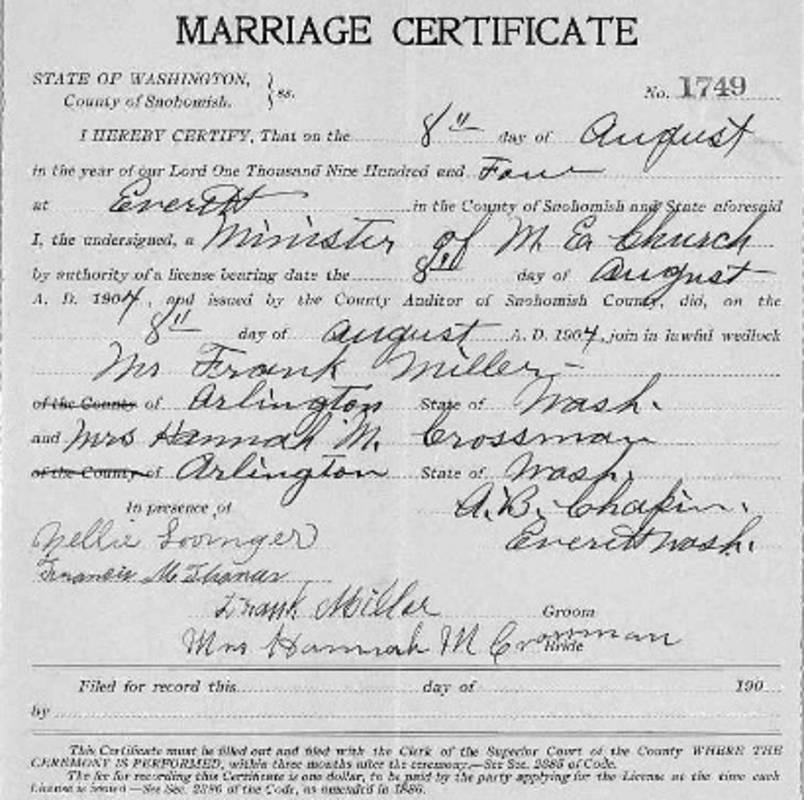 MARRIAGE CERTIFICATE
STATE OF WASHINGTON, } ss.
County of Snohomish.
No. 1749
I HEREBY CERTIFY, That on the 8" day of August
in the year of our Lord One Thousand Nine Hundred and Four
at Everett in the County of Snohomish and State aforesaid
I, the undersigned, a Minister of M. E. Church
by authority of a license bearing date the 8" day of August
A. D. 1904, and issued by the County Auditor of Snohomish County, did, on the
8" day of August A. D. 1904, join in lawful wedlock
Mr Frank Miller
of the County of Arlington State of Wash.
and Mrs Hannah M. Crossman
of the County of Arlington State of Wash.
In presence of A. B. Chapin.
Nellie Everett Wash.
Francis M
Frank Miller Groom
Mrs Hannah M Crossman Bride
Filed for record this day of 190
by
This Certificate must be filled out and filed with the Clerk of the Superior Court of the County WHERE THE
CEREMONY IS PERFORMED, within three months after the ceremony.—See Sec. 2385 of Code.
The fee for recording this Certificate is one dollar, to be paid by the party applying for the License at the time such
License is issued—See Sec. 2386 of the Code, as amended in 1886.